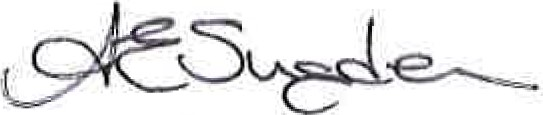 AE Sugden